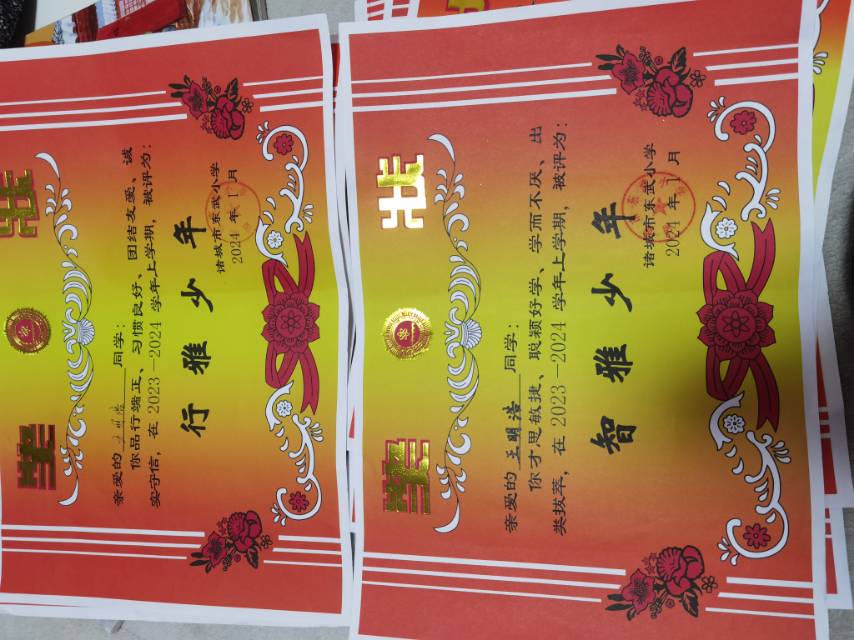 奖状
亲爱的
同学：
你品行端正、习惯良好、团结友爱、诚
实守信，在 2023-2024 学年上学期，被评为：
行雅少年
诸城市东武小学
2024 年 1 月
奖状
亲爱的 王明浩 同学：
你才思敏捷、聪颖好学、学而不厌、出
类拔萃，在 2023-2024 学年上学期，被评为：
智雅少年
诸城市东武小学
2024 年 1 月